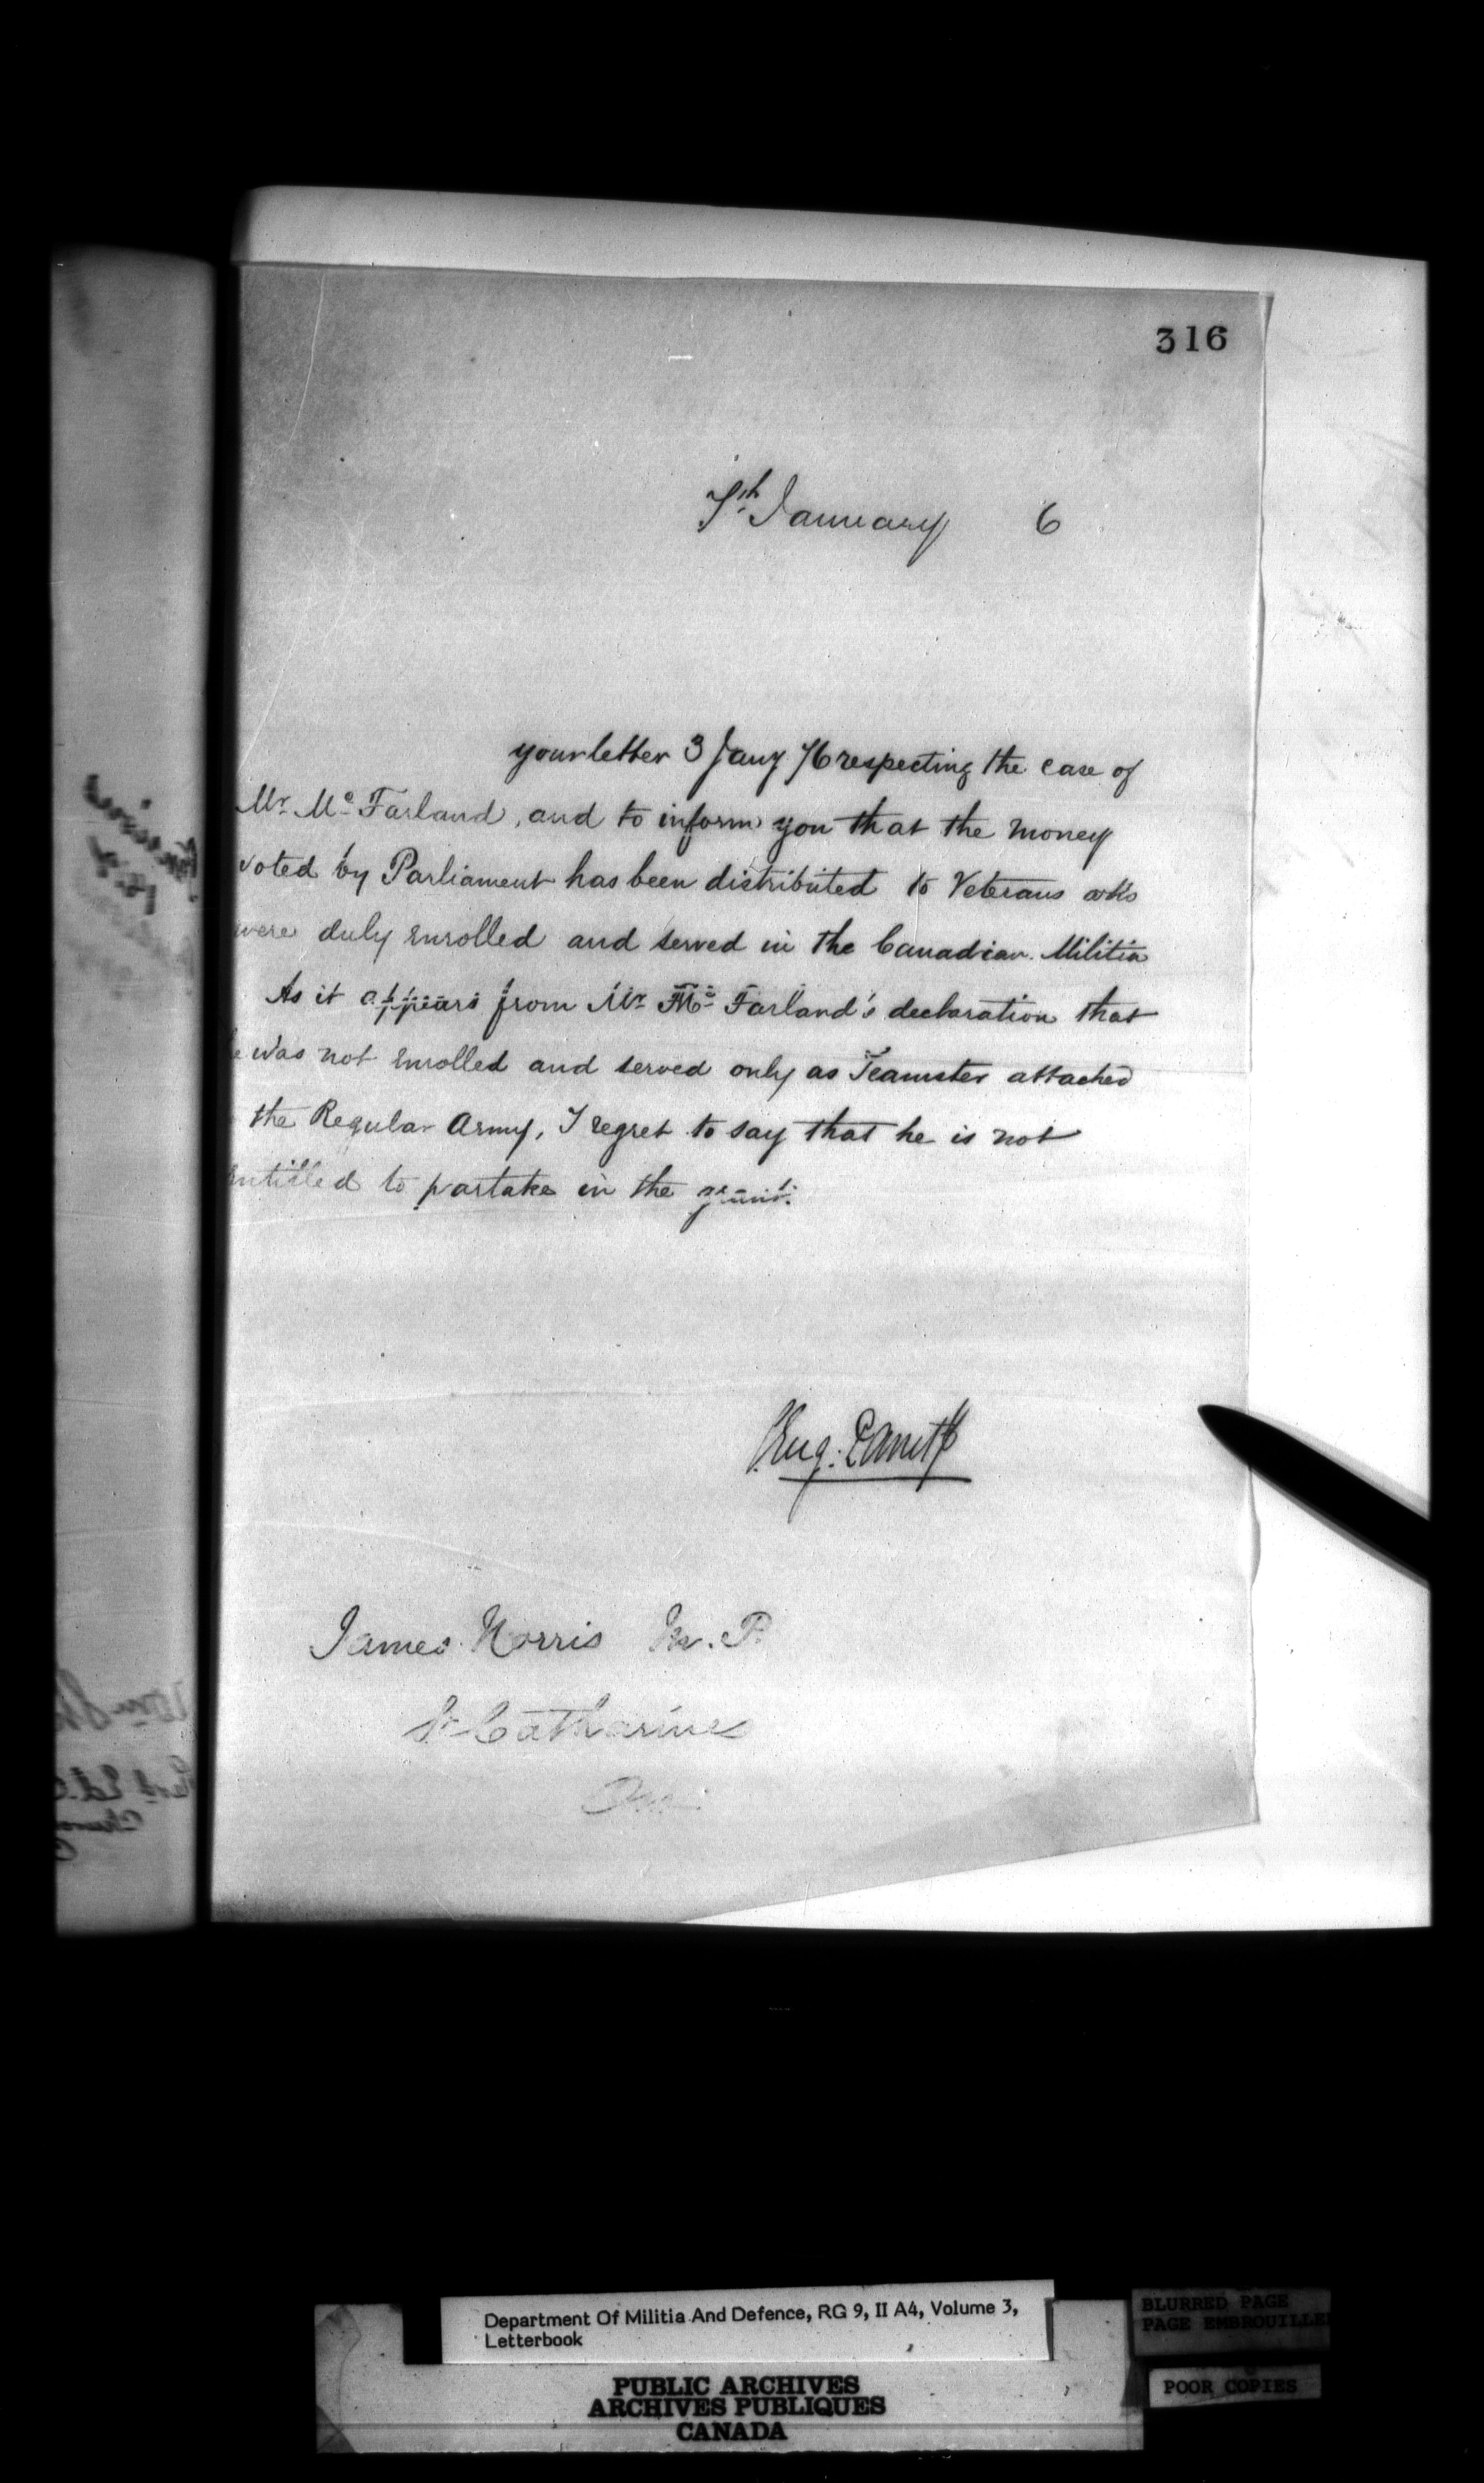 316
7th January 6
your letter 3 Jany 76 respecting the case of
Mr. Mc Farland, and to inform you that the money
voted by Parliament has been distributed to Veterans who
were duly enrolled and served in the Canadian Militia
As it appears from Mr Mc Farland's declaration that
he was not enrolled and served only as Teamster attached
the Regular Army, I regret to say that he is not
entitled to partake in the grant.
James Norris M.P.
St Catharines
Ont
Department Of Militia And Defence, RG 9, II A4, Volume 3,
Letterbook
PUBLIC ARCHIVES
ARCHIVES PUBLIQUES
CANADA
BLURRED PAGE
PAGE EMBROUILLE
POOR COPIES